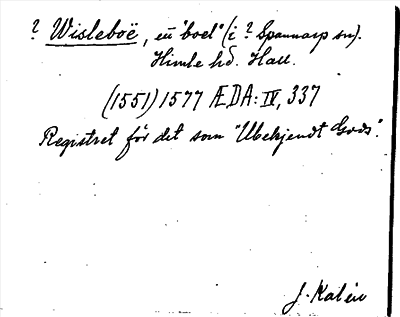 ? Wisleboë, en̄ "boel" (i ? Spannarp sn).
Himle hd. Hall.
(1551) 1577 ÆDA: IV, 337
Registret för det som "Ubekjendt Gods".
J. Kalén